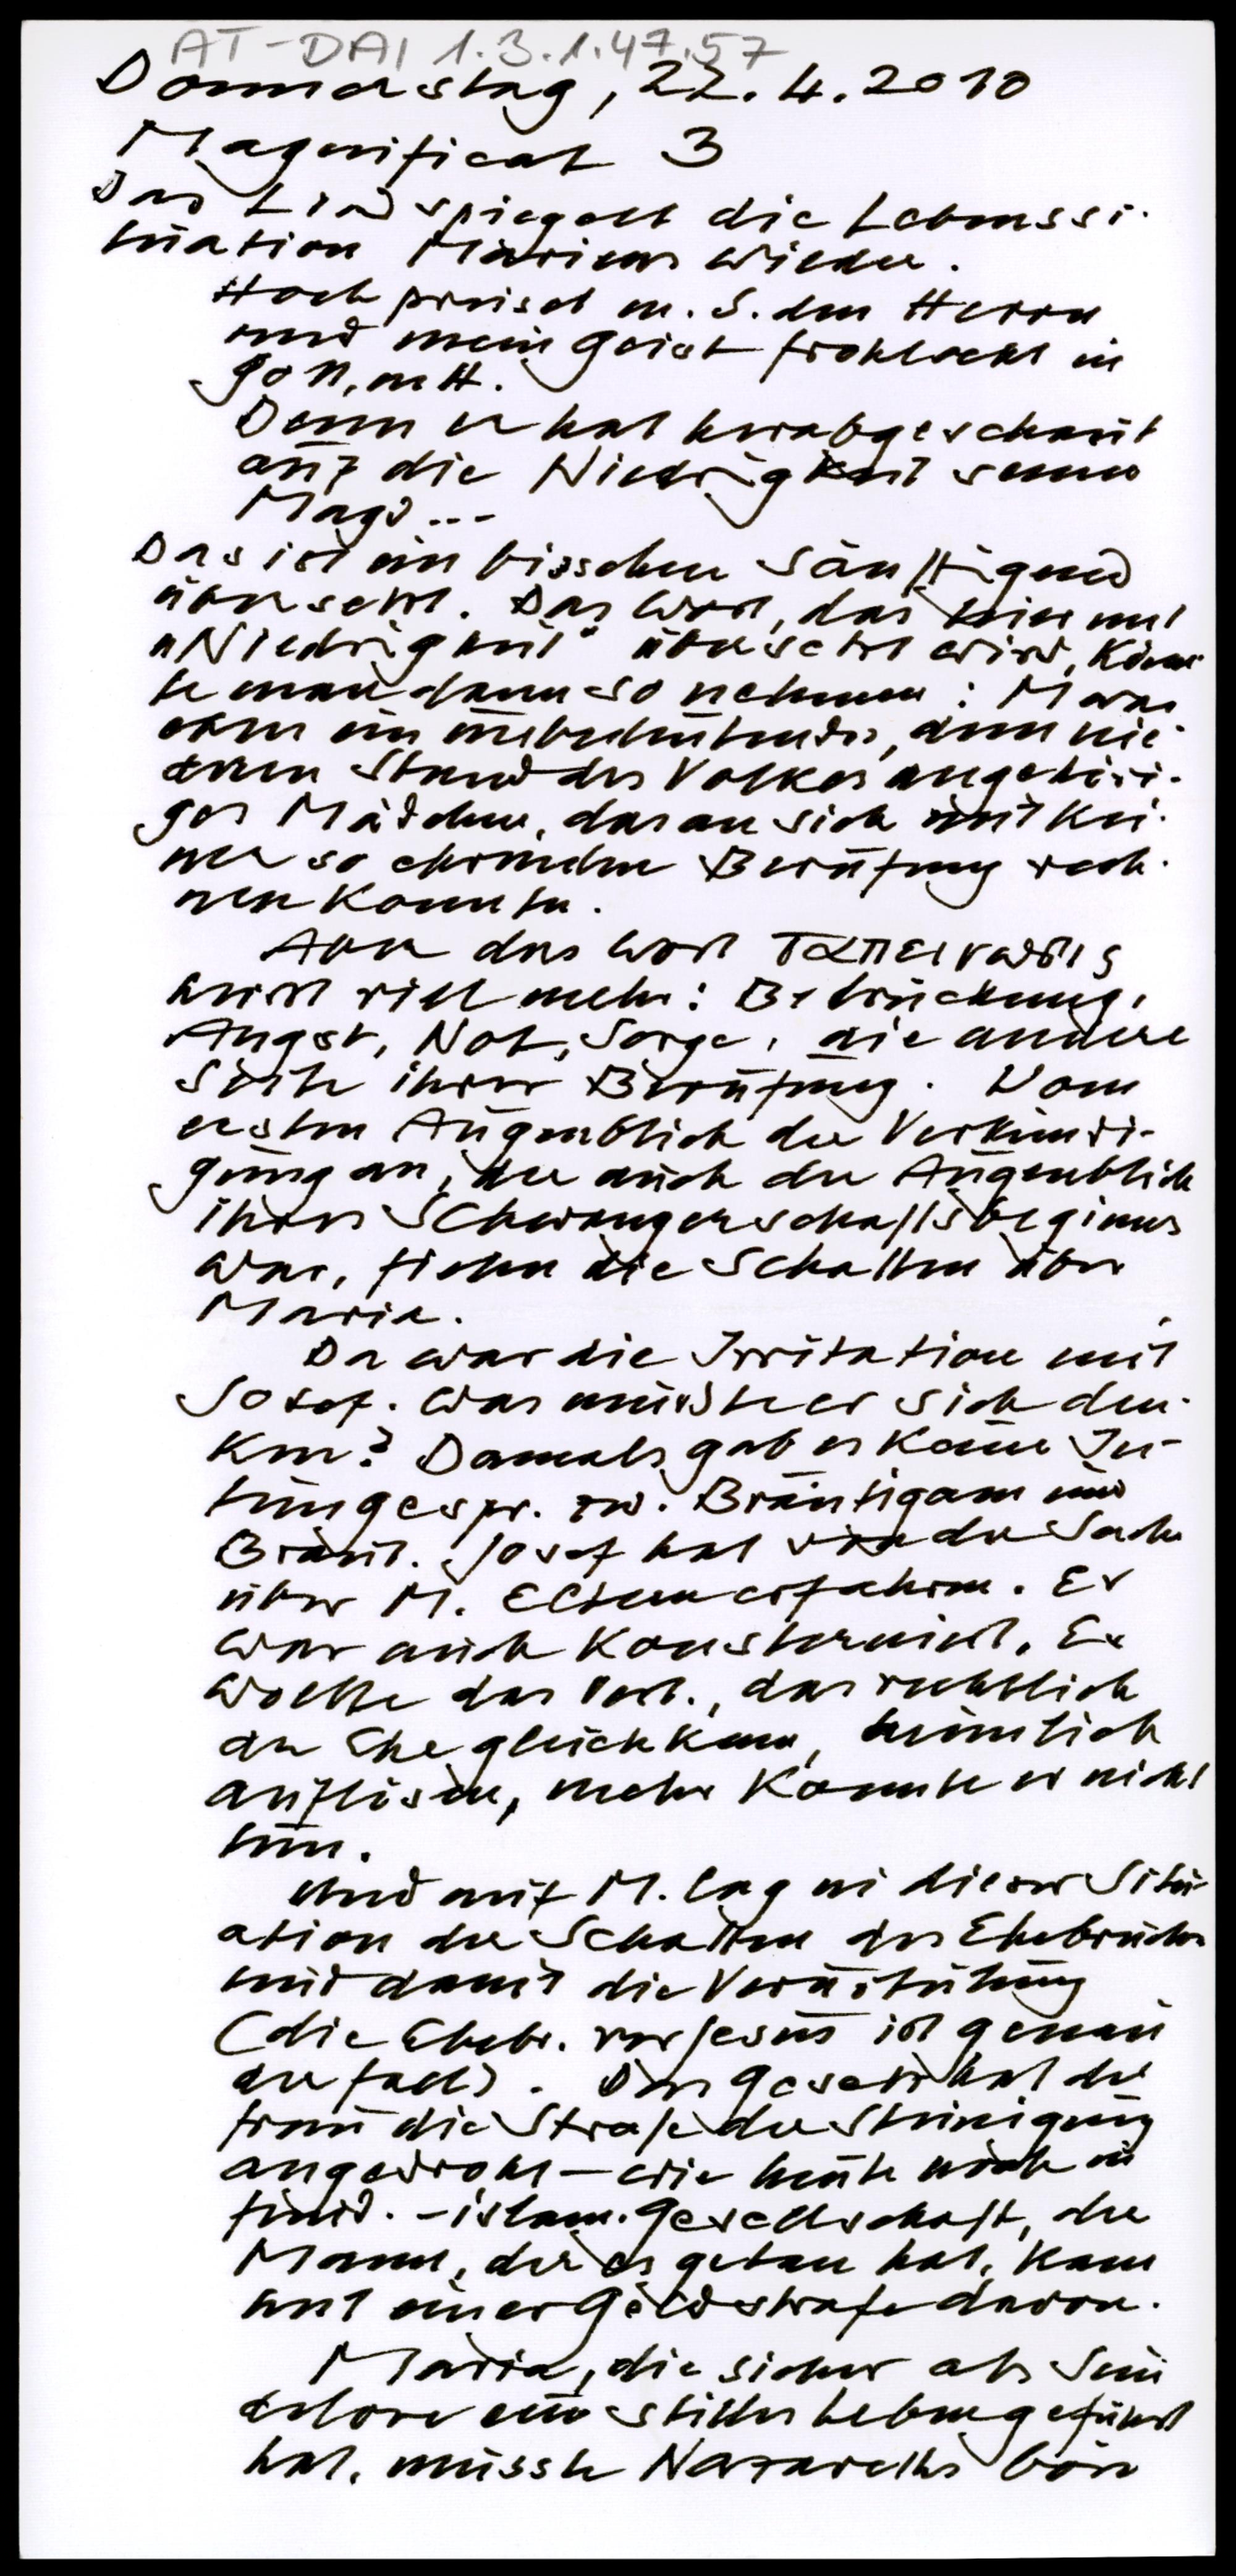 AT-DAI 1.3.1.47.57
Donnerstag, 22.4.2010
Magnificat 3
Das Lied spiegelt die Lebenssi-
tuation Mariens wieder.
Hoch preiset m. S. den Herrn
und mein Geist frohlockt in
Gott, m H.
Denn er hat herabgeschaut
auf die Niedrigkeit seiner
Magd ...
Das ist ein bisschen sänftigend
übersetzt. Das Wort, das hier mit
"Niedrigkeit" übersetzt wird, könn-
te man dann so nehmen: M war
eben ein unbedeutendes, dem nie-
deren Stand des Volkes angehöri-
ges Mädchen, das an sich mit kei-
ner so ehrenden Berufung rech-
nen konnte.
Aber das Wort Ταπεινωσις
heisst viel mehr: Bedrückung,
Angst, Not, Sorge, die andere
Seite ihrer Berufung. Vom
ersten Augenblick der Verkündi-
gung an, der auch der Augenblick
ihres Schwangerschaftsbeginns
war, fielen die Schatten über
Maria.
Da war die Irritation mit
Josef. Was musste er sich den-
ken? Damals gab es keine
zw. Bräutigam und
Braut. Josef hat von der Sache
über M. Eltern erfahren. Er
war auch konsterniert. Er
wollte das Verl., das rechtlich
der Ehe gleichkam, heimlich
auflösen, mehr konnte er nicht
tun.
Und auf M. lag in dieser Situ-
ation der Schatten des Ehebruchs
und damit die Verurteilung
(die Ehebr. vor Jesus ist genau
der Fall). Das Gesetz hat der
Frau die Strafe der Steinigung
angedroht – wie heute noch in
fund. - islam. Gesellschaft, der
Mann, der es getan hat, kam
mit einer Geldstrafe davon.
Maria, die sicher als Sün
delose ein stilles Leben geführt
hat, musste Nazareths böse